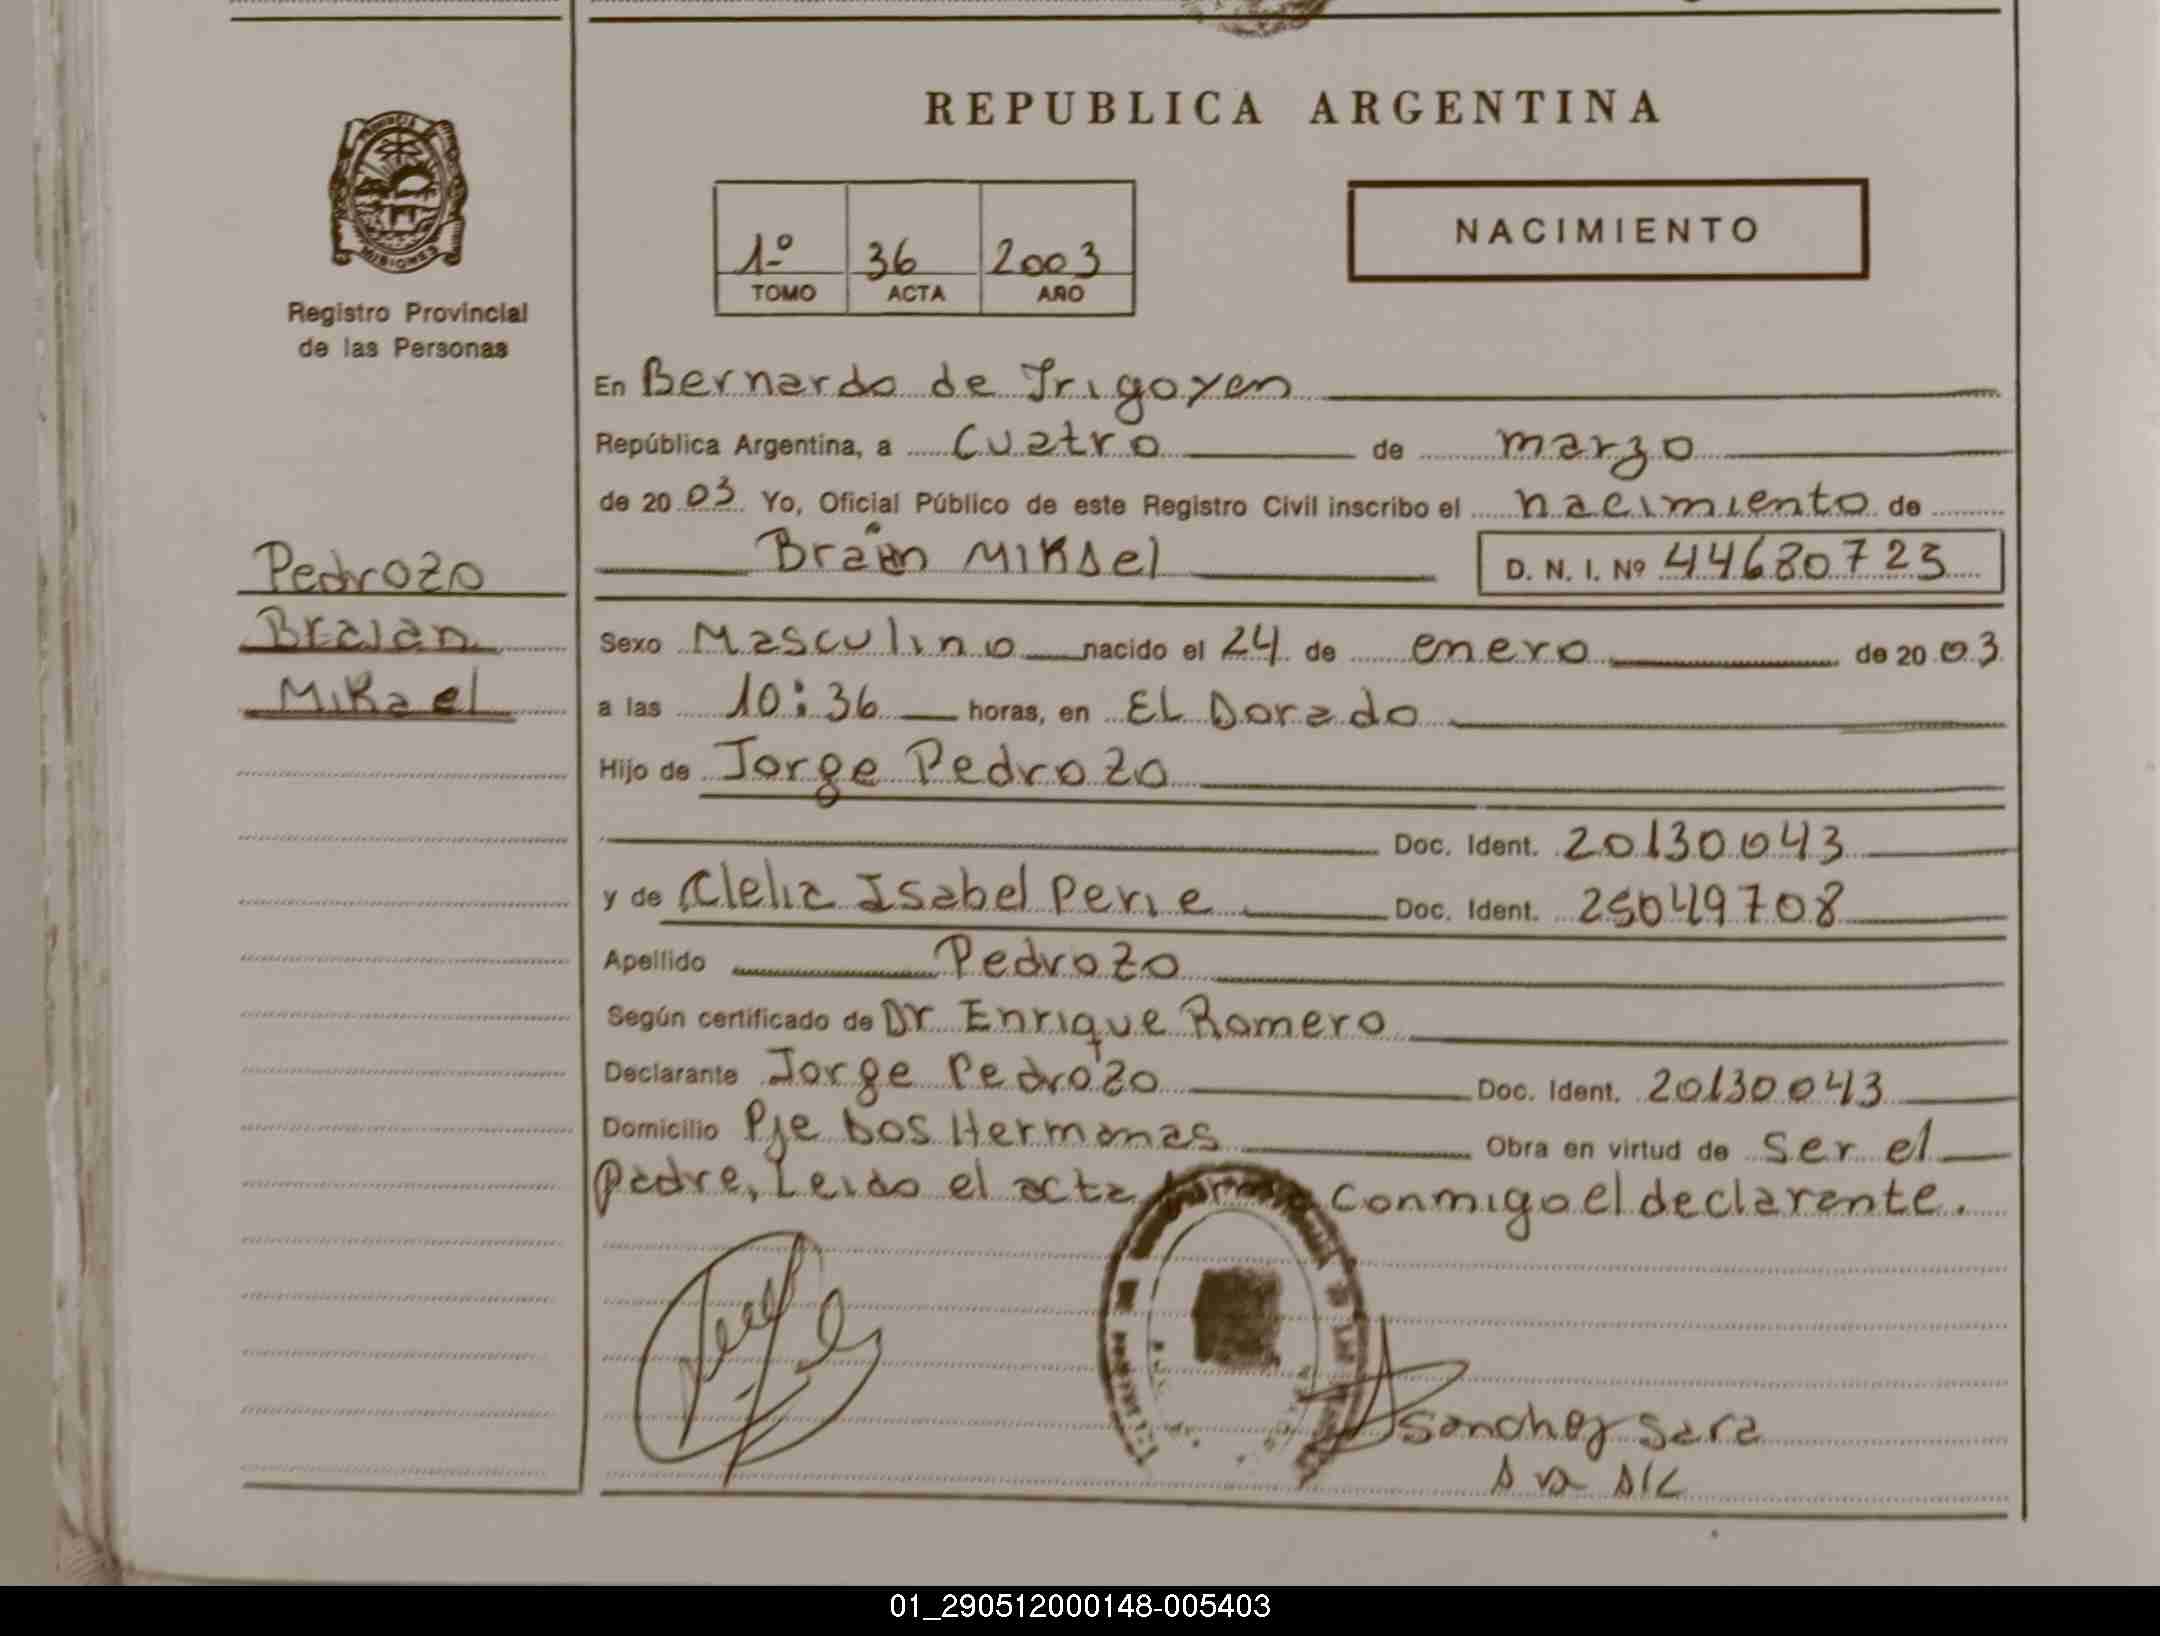 REPUBLICA ARGENTINA
PROVINCIA
MISIONES
Registro Provincial
de las Personas
1º 36 2003
TOMO ACTA AÑO
NACIMIENTO
En Bernardo de Irigoyen
República Argentina, a Cuatro de marzo
de 2003 Yo, Oficial Público de este Registro Civil inscribo el nacimiento de
Braian Mikael D. N. I. Nº 44680725
Pedrozo
Braian
Mikael
Sexo Masculino nacido el 24 de enero de 2003
a las 10:36 horas, en El Dorado
Hijo de Jorge Pedrozo
Doc. Ident. 20130043
y de Clelia Isabel Perie Doc. Ident. 25049708
Apellido Pedrozo
Según certificado de Dr Enrique Romero
Declarante Jorge Pedrozo Doc. Ident. 20130043
Domicilio Pje Dos Hermanas Obra en virtud de ser el
padre, Leido el acta conmigo el declarante.
Sanchez Sara
01_290512000148-005403